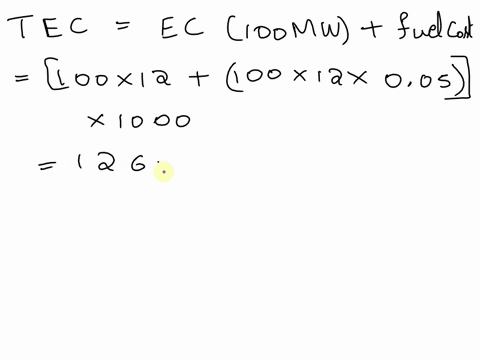 TEC = EC (100MW) + fuel Cost
= [100×12 + (100×12× 0.05)]
×1000
= 126.